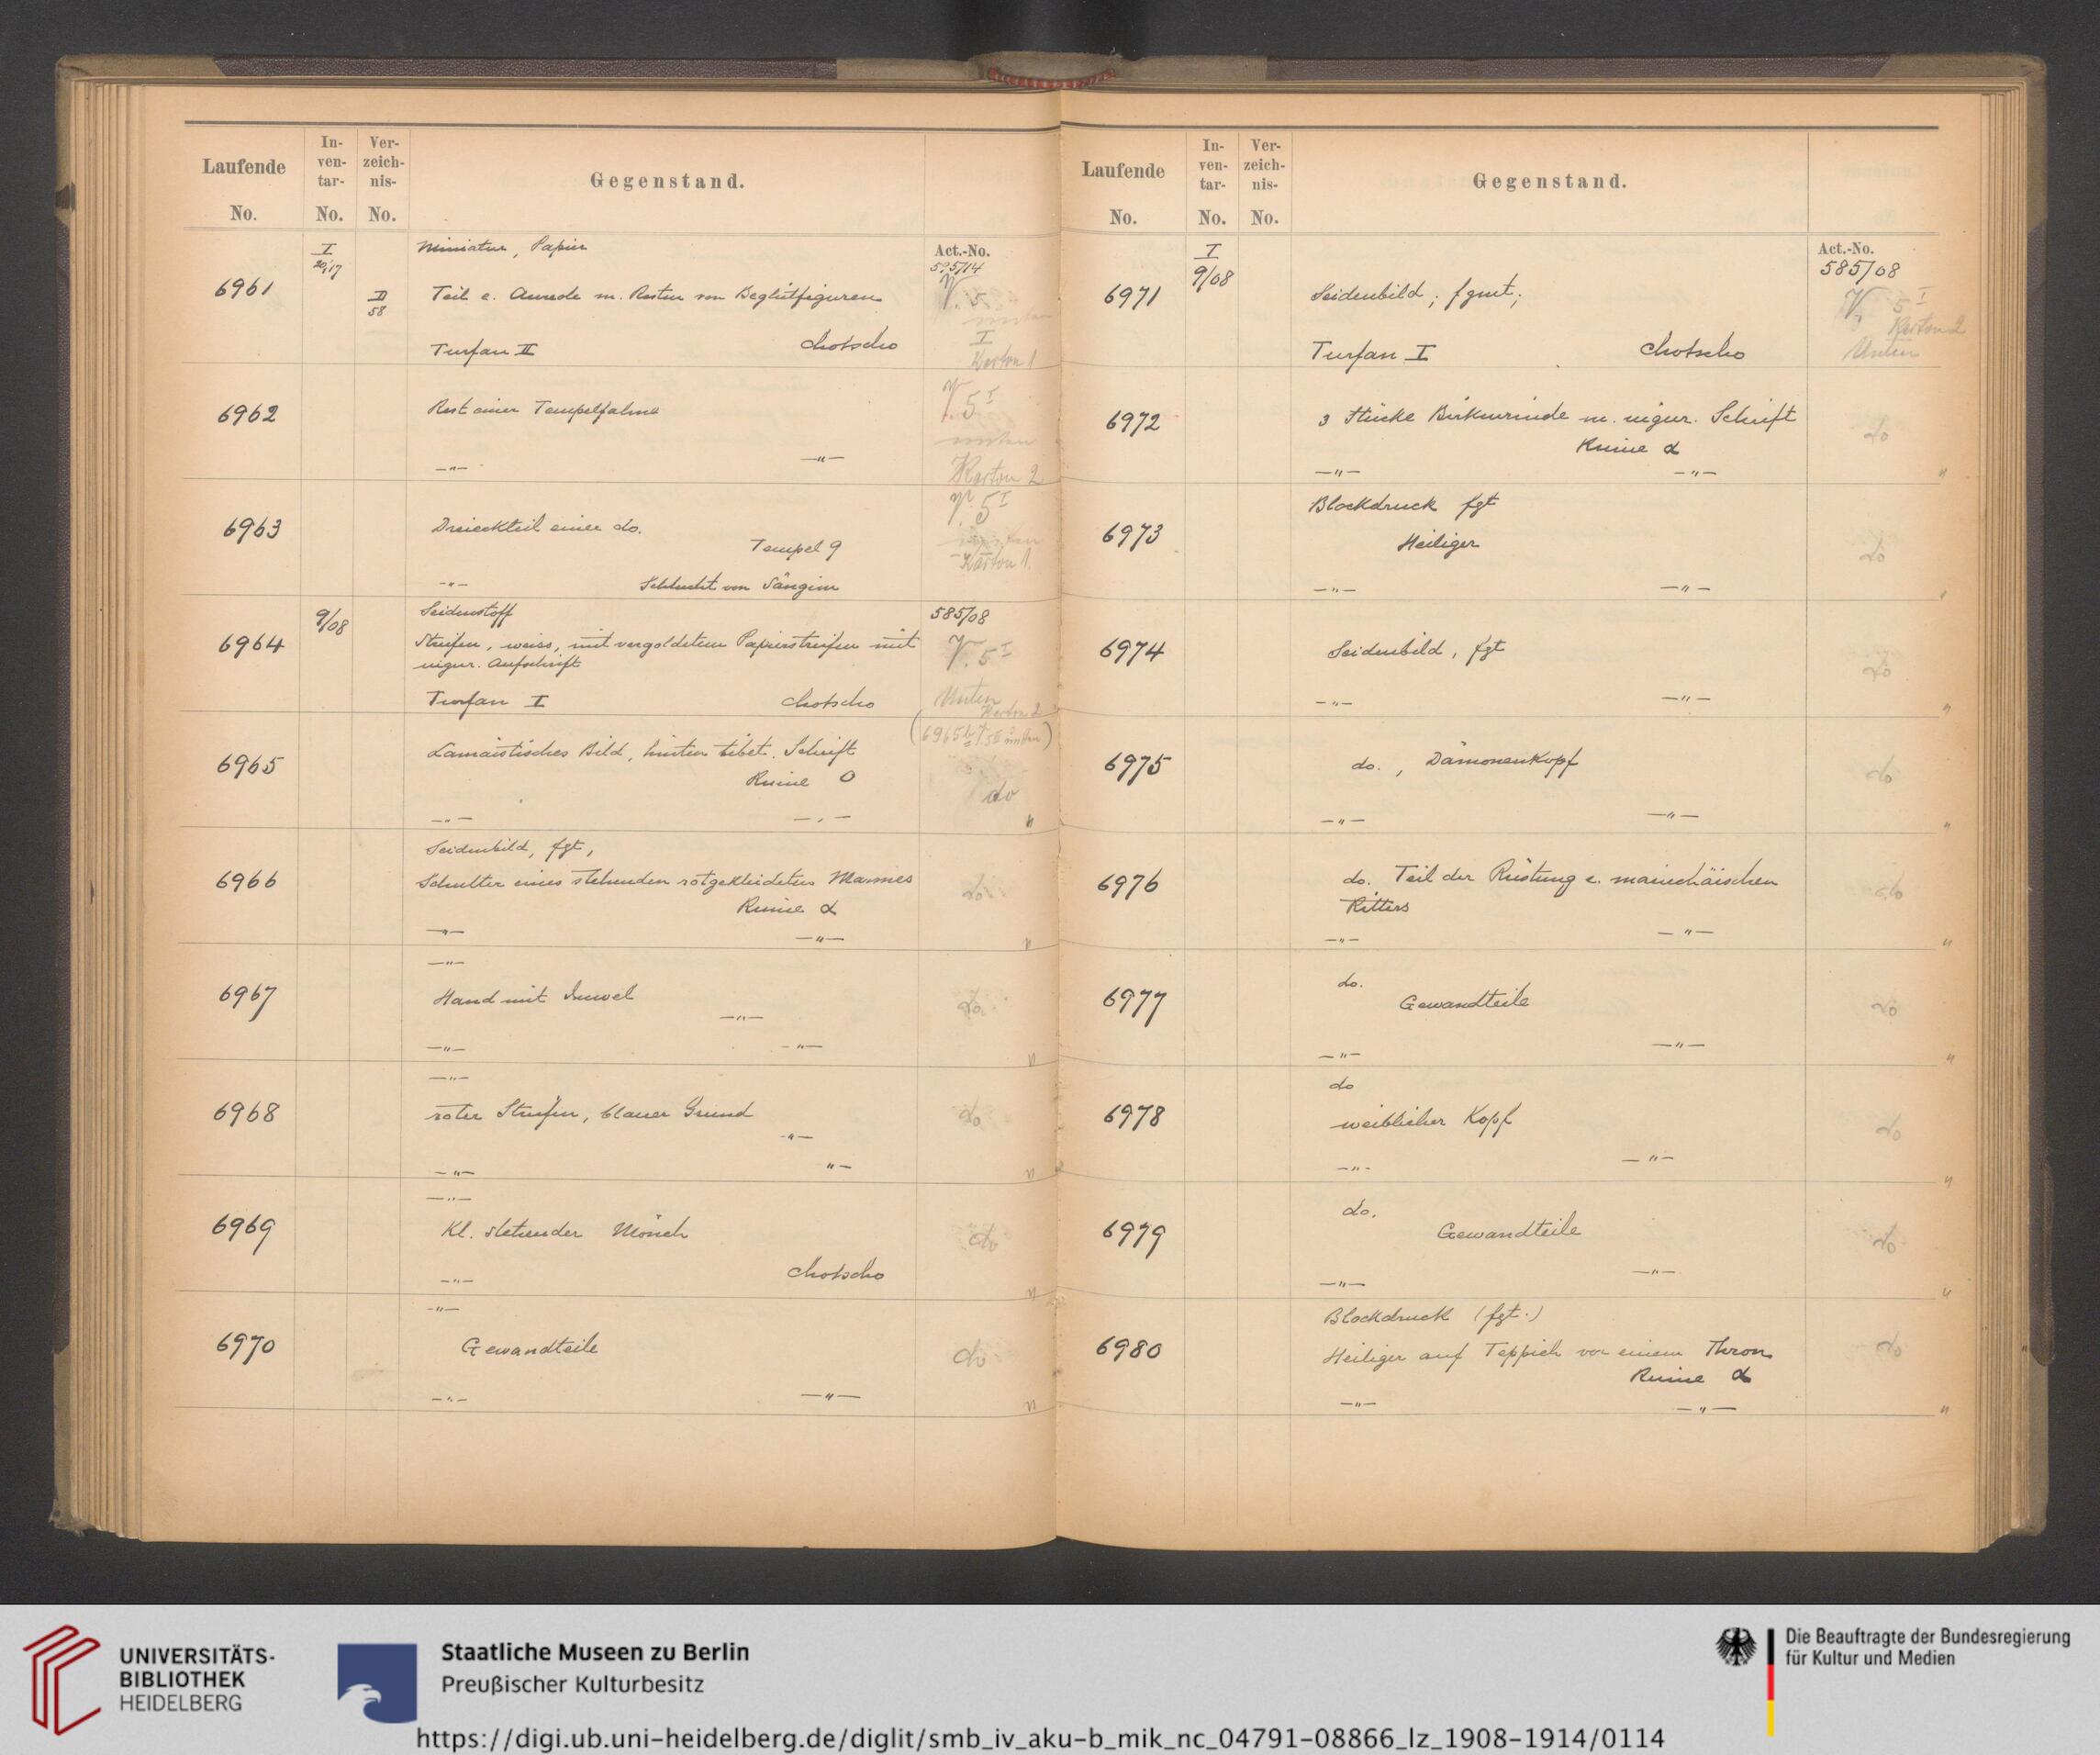 Laufende No.
In-ven-tar- No.
Ver-zeich-nis- No.
Gegenstand.
6961
I
20/17
II
58
Miniatur, Papier
Teil e. Aureole m. Resten von Begleitfiguren
Turfan II Chotscho
Act.-No.
V. 5
I
Karton 1
6962
Rest einer Tempelfahne
—"— —"—
V. 5 I
unten
Karton 2
6963
Dreieckteil einer do.
Tempel 9
—"— Schlucht von Sängim
V. 5 I
Karton 1.
6964
9/08
Seidenstoff
Streifen, weiss, mit vergoldetem Papierstreifen mit
uigur. Aufschrift
Turfan I Chotscho
585/08
V. 5 I
Unten
Karton 2
6965
Lamaistisches Bild, hinten tibet. Schrift
Ruine O
—"— —"—
do
"
6966
Seidenbild, fgt,
Schulter eines stehenden rotgekleideten Mannes
Ruine α
—"— —"—
do
"
6967
—"—
Hand mit Juwel
—"—
—"— —"—
do
"
6968
—"—
roter Streifen, blauer Grund
—"—
—"— "—
do
"
6969
—"—
Kl. stehender Mönch
—"— Chotscho
do
"
6970
—"—
Gewandteile
—"— —"—
do
"
Laufende No.
In-ven-tar- No.
Ver-zeich-nis- No.
Gegenstand.
6971
I
9/08
Seidenbild; fgmt;
Turfan I Chotscho
Act.-No.
585/08
V. 5 I
Karton 2
Unten
6972
3 Stücke Birkenrinde m. uigur. Schrift
Ruine α
—"— —"—
do
"
6973
Blockdruck fgt
Heiliger
—"— —"—
do
"
6974
Seidenbild, fgt
—"— —"—
do
"
6975
do., Dämonenkopf
—"— —"—
do
"
6976
do. Teil der Rüstung e. manichäischen
Ritters
—"— —"—
do
"
6977
do.
Gewandteile
—"— —"—
do
"
6978
do
weiblicher Kopf
—"— —"—
do
"
6979
do.
Gewandteile
—"— —"—
do
"
6980
Blockdruck (fgt.)
Heiliger auf Teppich vor einem Thron
Ruine α
—"— —"—
do
"
UNIVERSITÄTS-
BIBLIOTHEK
HEIDELBERG
Staatliche Museen zu Berlin
Preußischer Kulturbesitz
Die Beauftragte der Bundesregierung
für Kultur und Medien
https://digi.ub.uni-heidelberg.de/diglit/smb_iv_aku-b_mik_nc_04791-08866_lz_1908-1914/0114